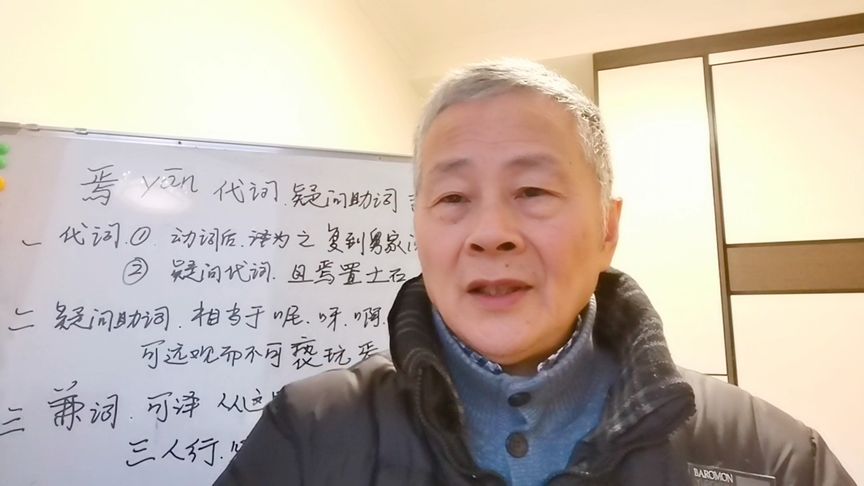 焉 yān 代词.疑问助词
一 代词.① 动词后.译为之 复到舅家
② 疑问代词.且焉置土石
二 疑问助词.相当于呢.呀.啊.
可远观而不可亵玩焉
三 兼词.可译 从这
三人行.
BAROMON